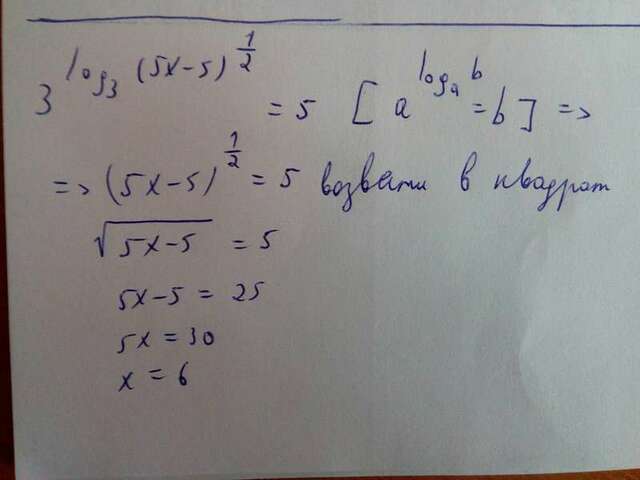 3^{log_3 (5x-5)^{1/2}} = 5 [a^{log_a b} = b] =>
=> (5x-5)^{1/2} = 5 возвели в квадрат
√(5x-5) = 5
5x-5 = 25
5x = 30
x = 6